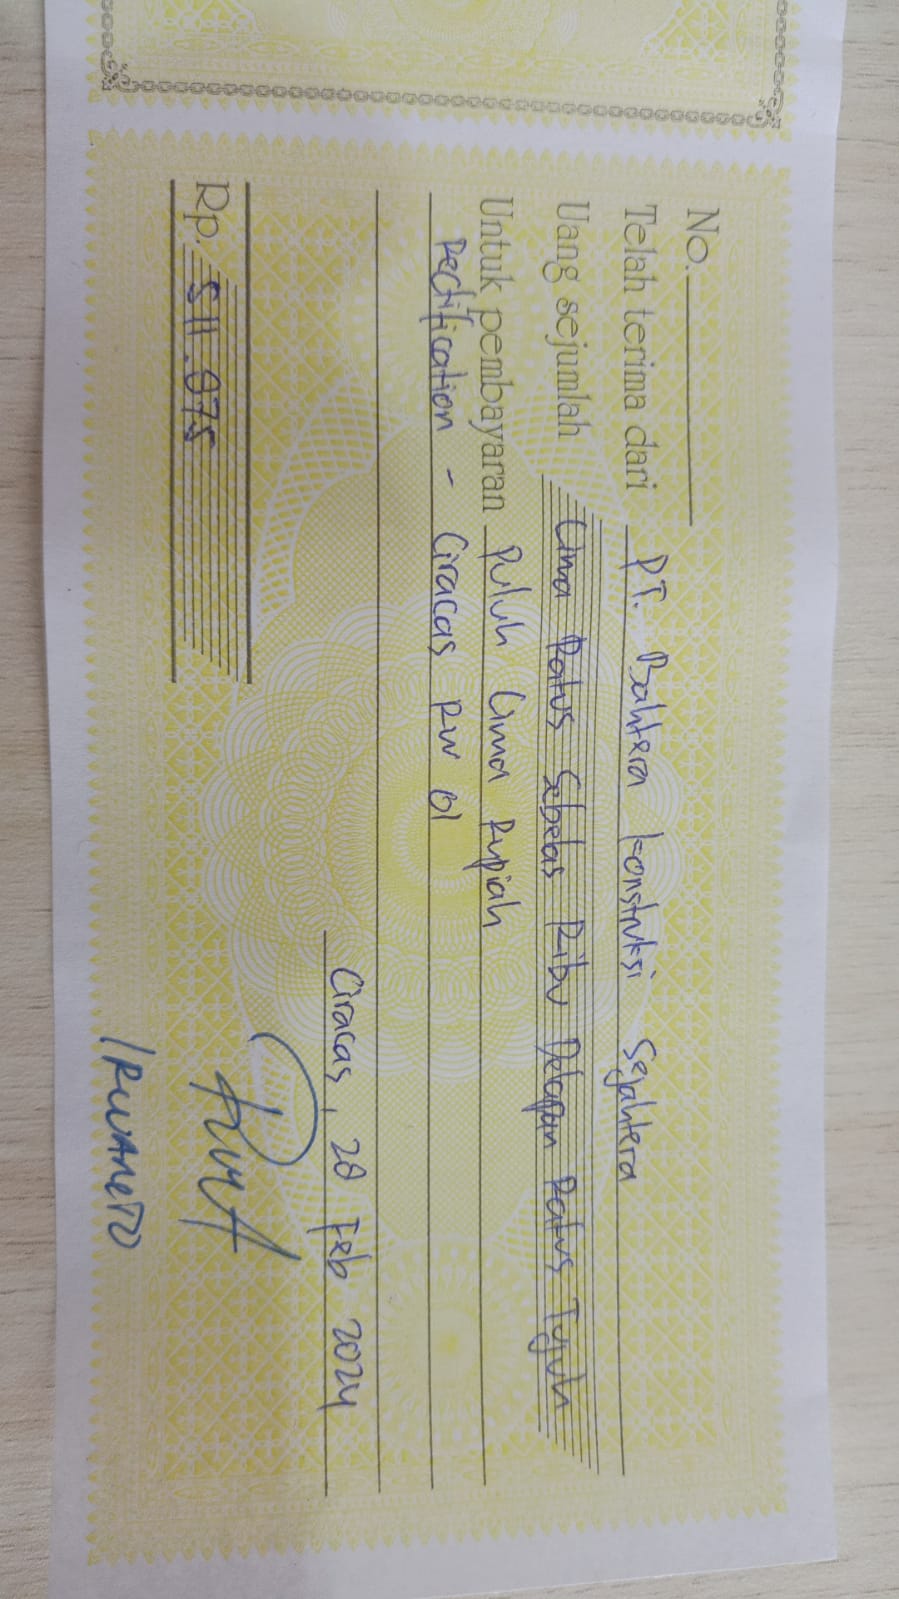 No.
Telah terima dari PT. Bahtera Konstruksi Sejahtera
Uang sejumlah Lima Ratus Sebelas Ribu Delapan Ratus Tujuh
Untuk pembayaran Puluh Lima Rupiah
Rectification - Ciracas RW 01
Ciracas, 28 Feb 2024
Rp. 511.875
IRWANTO